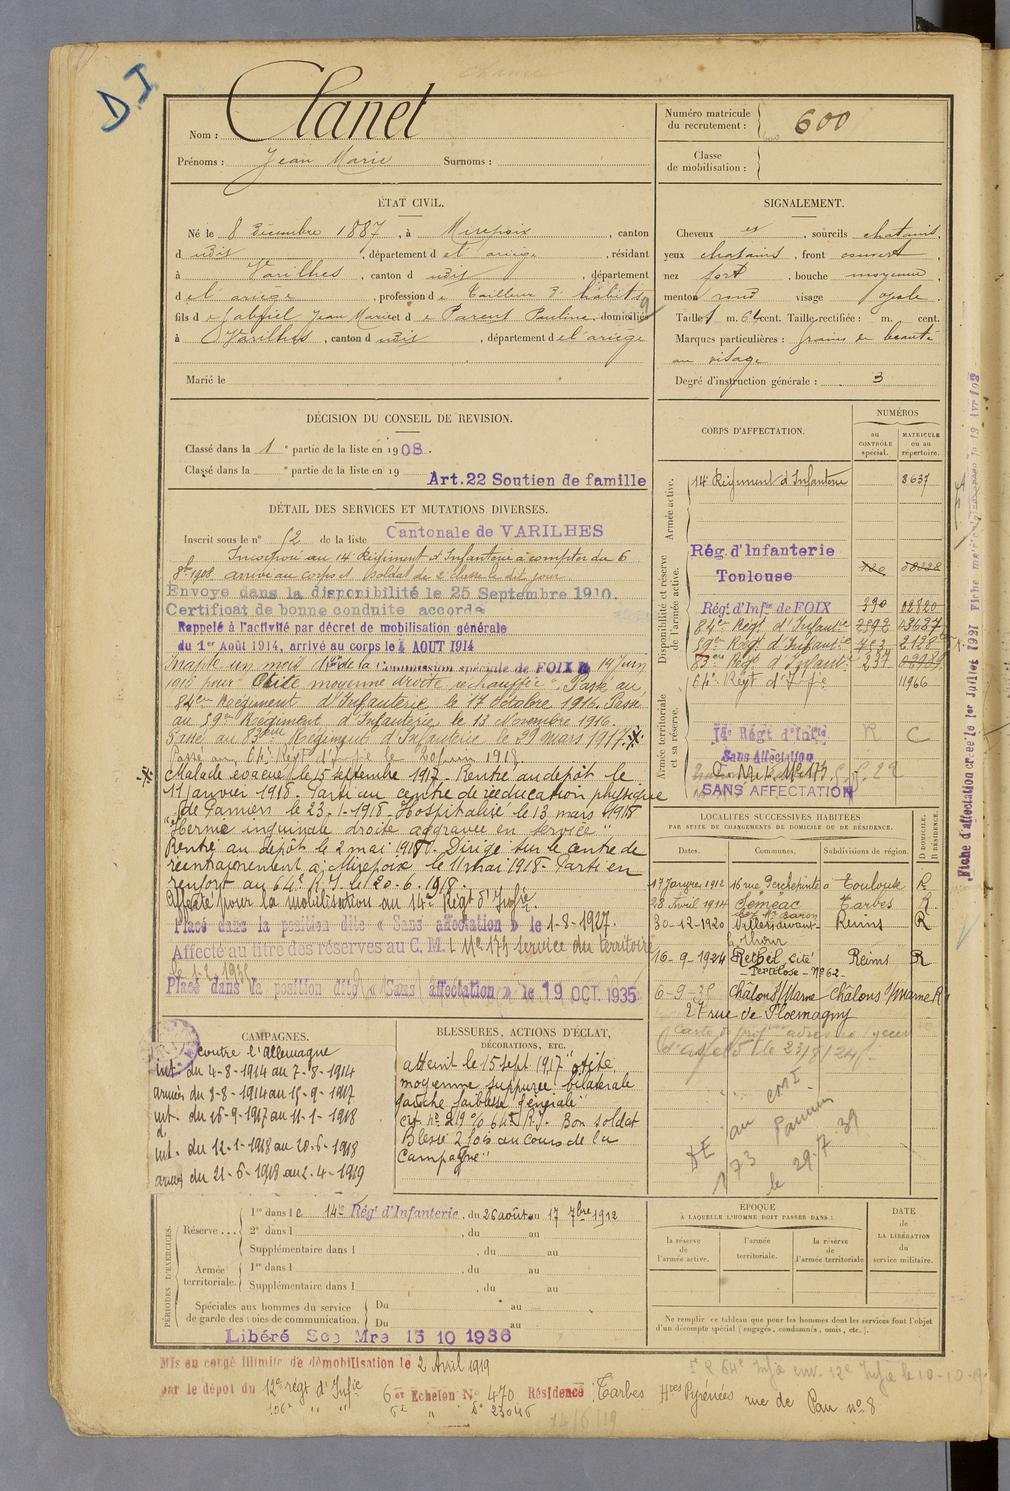 D.I
Nom : Clanet
Prénoms : Jean Marie Surnoms :
Numéro matricule du recrutement : 600
Classe de mobilisation :
ÉTAT CIVIL.
Né le 8 Décembre 1887, à Mirepoix, canton
d udit, département de l'ariège, résidant
à Varilhes, canton d udit, département
de l'ariège, profession de Tailleur d'habits
fils de Gabriel Jean Marie et de Parent Pauline, domiciliés
à Varilhes, canton d udit, département de l'ariège
Marié le
SIGNALEMENT.
Cheveux et, sourcils chatains,
yeux chatains, front couvert,
nez fort, bouche moyenne,
menton rond visage ovale.
Taille 1 m. 64 cent. Taille rectifiée : m. cent.
Marques particulières : grains de beauté
au visage
Degré d'instruction générale : 3
DÉCISION DU CONSEIL DE REVISION.
Classé dans la 1e partie de la liste en 1908.
Classé dans la e partie de la liste en 19
Art.22 Soutien de famille
DÉTAIL DES SERVICES ET MUTATIONS DIVERSES.
Inscrit sous le n° 52 de la liste Cantonale de VARILHES
Incorporé au 14e Régiment d'Infanterie à compter du 6
8bre 1908 arrivé au corps et soldat de 2e classe le dit jour
Envoyé dans la disponibilité le 25 Septembre 1910.
Certificat de bonne conduite accordé
Rappelé à l'activité par décret de mobilisation générale
du 1er Août 1914, arrivé au corps le 4 AOUT 1914
Inapte un mois de la Commission spéciale de FOIX 14 Juin
1916 pour Otite moyenne droite rechauffée. Passé au
84eme Régiment d'Infanterie le 17 octobre 1916. Passé
au 59eme Régiment d'Infanterie le 13 Novembre 1916.
Passé au 83eme Régiment d'Infanterie le 29 mars 1917.
Passé au 64e Régt d'Ifie le 20 juin 1918.
Malade évacué le 15 septembre 1917. Rentré au dépôt le
11 janvier 1918. Parti au centre de rééducation physique
de Pamiers le 23-1-1918. Hospitalisé le 13 mars 1918
"Hernie inguinale droite aggravée en service"
Rentré au dépôt le 2 mai 1918. Dirigé sur le centre de
réentrainement à Mirepoix le 11 mai 1918. Parti en
renfort au 64e R.I. le 20-6-1918.
Affecté pour la mobilisation au 14e Régt d'Infrie.
Placé dans la position dite « Sans affectation » le 1-8-1927.
Affecté au titre des réserves au C. M. I. No 173 service du territoire
Placé dans la position dite « Sans affectation » le 19 OCT. 1935
CORPS D'AFFECTATION.
NUMÉROS
au CONTRÔLE spécial.
MATRICULE ou au répertoire.
Armée active.
14e Régiment d'Infanterie 8637
Disponibilité et réserve de l'armée active.
Rég. d'Infanterie
Toulouse
Rég.t d'Infie de FOIX 390 02820
84e Régt d'Infantie 2392 13637
59e Régt d'Infantie
83eme Régt d'Infantie 237
64e Régt d'Ifie 11966
Armée territoriale et sa réserve.
14e Régt d'Infie R C
Sans Affectation
C. M. I. No 173
SANS AFFECTATION
LOCALITÉS SUCCESSIVES HABITÉES
PAR SUITE DE CHANGEMENTS DE DOMICILE OU DE RÉSIDENCE.
Dates. Communes. Subdivisions de région. D DOMICILE. R RÉSIDENCE.
17 Janvier 1912 16 rue Perchepinte à Toulouse R
28 Avril 1914 Séméac Tarbes R
30-12-1920 Villers devant le Thour Reims R
16-9-1924 Rethel, cité Reims R
Nº 62
6-9-32 Châlons s/Marne Châlons s/Marne R
27 rue de Ploemagny
CAMPAGNES.
contre l'Allemagne
int. du 4-8-1914 au 7-8-1914
armées du 8-8-1914 au 15-9-1917
int. du 16-9-1917 au 11-1-1918
int. du 12-1-1918 au 20-6-1918
armées du 21-6-1918 au 2-4-1919
BLESSURES, ACTIONS D'ÉCLAT, DÉCORATIONS, ETC.
atteint le 15 sept 1917 "otite
moyenne suppurée bilatérale
gauche faiblesse générale"
cit. nº 219 % 64e R.I. Bon soldat
Blessé 2 fois au cours de la
Campagne"
au CMI
173 Pamiers
le 29-7-39
PÉRIODES D'EXERCICES.
Réserve... 1re dans le 14e Rég.t d'Infanterie, du 26 août au 17 7bre 1912
2e dans l , du au
Supplémentaire dans l , du au
Armée territoriale. 1re dans l , du au
Supplémentaire dans l , du au
Spéciales aux hommes du service de garde des voies de communication. Du au
Du au
Libéré Sce Mre 15 10 1936
ÉPOQUE
À LAQUELLE L'HOMME DOIT PASSER DANS :
la réserve de l'armée active.
l'armée territoriale.
la réserve de l'armée territoriale
DATE de LA LIBÉRATION du service militaire.
Ne remplir ce tableau que pour les hommes dont les services font l'objet
d'un décompte spécial (engagés, condamnés, omis, etc.).
Mis en congé illimité de démobilisation le 2 Avril 1919
par le dépôt du 12e régt d'Infie 6er Echelon No 470 Résidence Tarbes Htes Pyrénées rue de Pau nº 8
14/6/19
Fiche d'affectation créée le 1er Juillet 1921